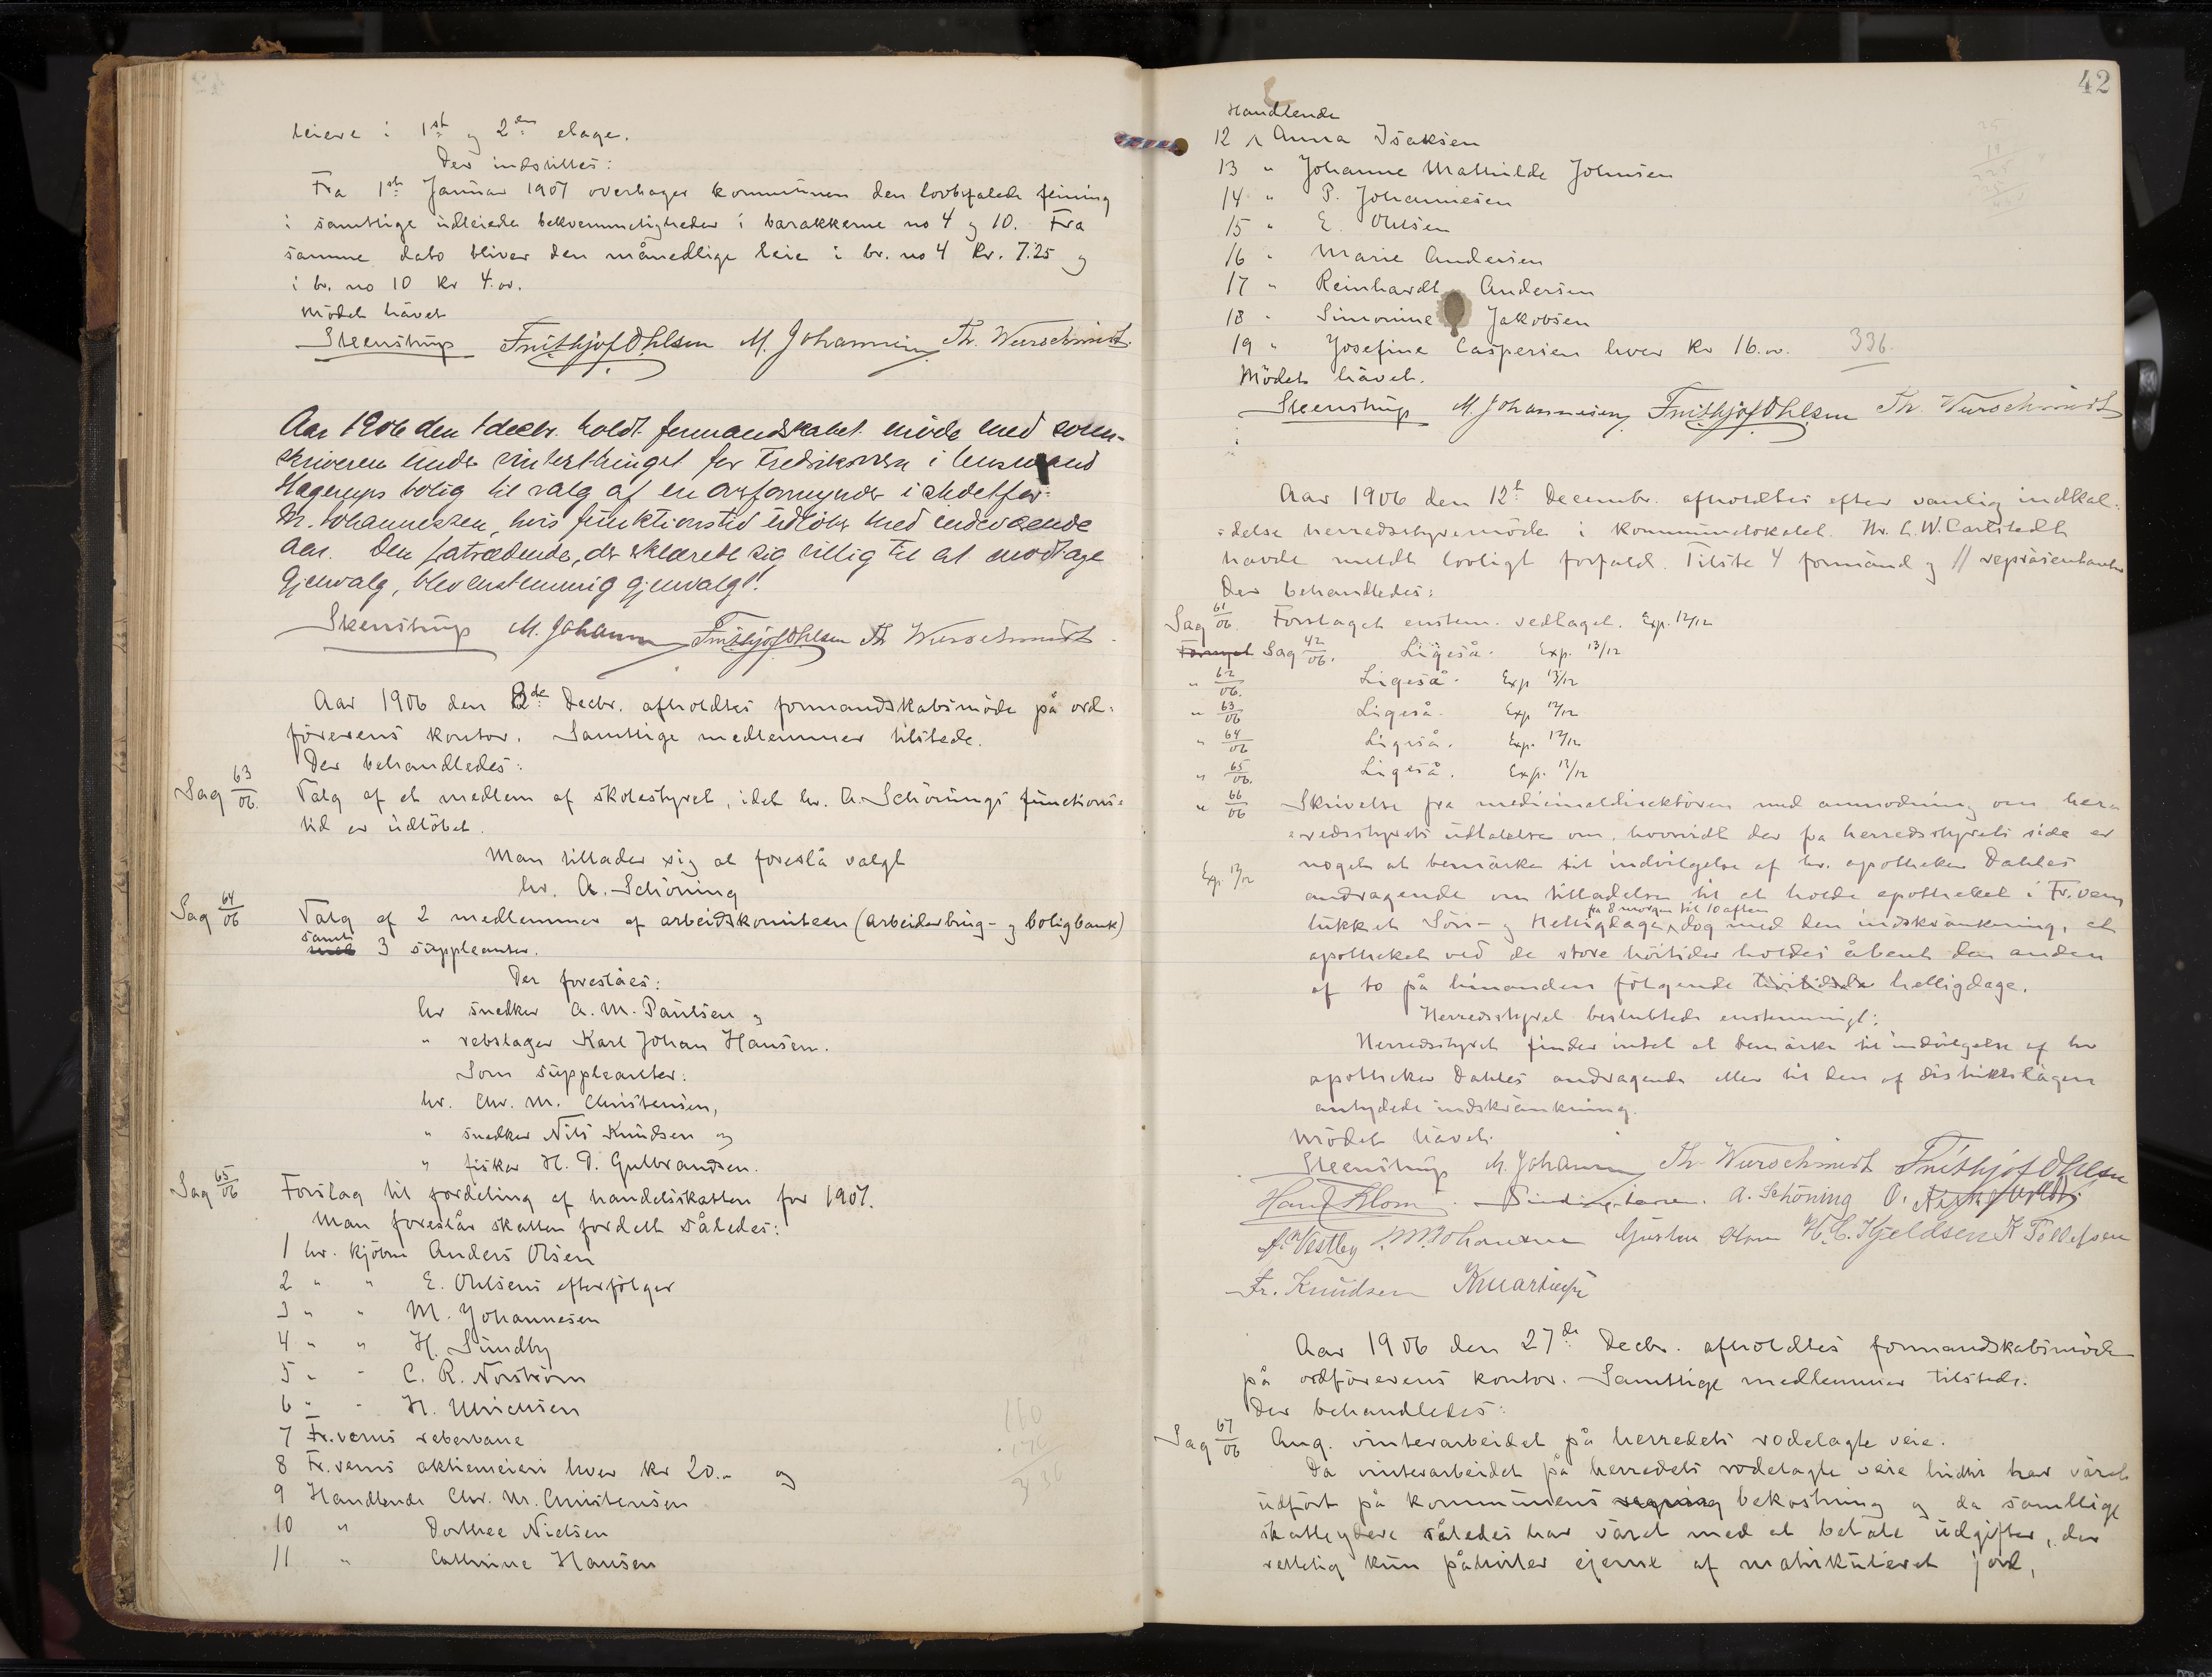 leiere i 1st og 2en etage.
Der indstilles:
Fra 1st Januar 1907 overtager kommunen den lovbefalede feining
i samtlige udleiede bekvemmeligheder i barakkerne no 4 og 10. Fra
samme dato bliver den månedlige leie i br. no 4 kr. 7.25 og
i br. no 10 kr 4.00.
Mödet hävet
Steenstrup Frithjof Ohlsen M. Johannesen Th. Wurschmidt.
Aar 1906 den 1 decbr. holdt formandskabet møde med soren-
skriveren under vinterthinget for Fredriksvern i lensmand
Hagerups bolig til valg af en overformynder istedetfor
M. Johannessen, hvis funktionstid udløber med indeværende
Aar. Den fratrædende, der erklærede sig villig til at modtage
Gjenvalg, blev enstemmig gjenvalgt.
Steenstrup M. Johannesen Frithjof Ohlsen Th Wurschmidt
Aar 1906 den 2de Decbr. afholdtes formandskabsmöde på ord-
förerens kontor. Samtlige medlemmer tilstede.
Der behandledes:
Sag 63/06. Valg af et medlem af skolestyret, idet hr. A. Schönings functions-
tid er udlöbet.
Man tillader sig at foreslå valgt
hr. A. Schöning
Sag 64/06 Valg af 2 medlemmer af arbeidskomiteen (Arbeiderbrug- og boligbank)
samt
med 3 suppleanter.
Der foreslåes:
hr snedker A. M. Paulsen og
" rebslager Karl Johan Hansen.
Som suppleanter:
hr. Chr. M. Christensen,
" snedker Nils Knudsen og
" fisker H. P. Gulbrandsen.
Sag 65/06 Forslag til fordeling af handelsskatten for 1907.
Man foreslår skatten fordelt således:
1 hr. kjöbm Anders Olsen
2 " " E. Ohlsens efterfölger
3 " " M. Johannesen
4 " " H. Sundby
5 " " C. R. Norström
6 " " H. Ulrichsen
7 Fr.verns reberbane
8 Fr.verns aktiemeieri hver kr 20.- og
9 Handlende Chr. M. Christensen
10 " Dorthea Nielsen
11 " Cathrine Hansen
160
336
42
Handlende
12 Anna Isaksen
13 " Johanne Mathilde Johnsen
14 " P. Johannesen
15 " E. Ohlsen
16 " Marie Andersen
17 " Reinhardt Andersen
18 " Simonine Jakobsen
19 " Josefine Caspersen hver kr 16.00. 336.
Mödet hävet.
Steenstrup M. Johannesen Frithjof Ohlsen Th. Wurschmidt
Aar 1906 den 12te Decembr. afholdtes efter vanlig indkal-
-delse herredsstyremöde i kommunelokalet. Hr. C. W. Carlstedt
havde meldt lovligt forfald. Tilste 4 formänd og 11 repräsentanter
Der behandledes:
Sag 61/06. Forslaget enstem. vedtaget. Exp. 12/12
Fornyet Sag 42/06. Ligeså. Exp. 13/12
" 62/06. Ligeså. Exp 13/12
" 63/06 Ligeså. Exp 12/12
" 64/06 Ligeså. Exp. 12/12
" 65/06. Ligeså. Exp. 12/12
" 66/06 Skrivelse fra medicinaldirektören med anmodning om her-
-redsstyrets udtalelse om, hvorvidt der fra herredsstyrets side er
noget at bemärke til indvilgelse af hr. apotheker Dahles
Exp. 12/12
andragende om tilladelse til at holde apotheket i Fr.vern
fra 8 morgen til 10 aften
lukket Sön- og Helligdage, dog med den indskränkning, at
apotheket ved de store höitider holdes åbent den anden
af to på hinanden fölgende helligdage.
Herredsstyret besluttede enstemmigt:
Herredsstyret finder intet at bemärke til indvilgelse af hr
apotheker Dahles andragende eller til den af distriktslägen
antydede indskränkning.
Mödet hävet.
Steenstrup M. Johannesen Th. Wurschmidt Frithjof Ohlsen
Hans Blom. A. Schöning O.
A. Vestby M. Johansen Gustav H. C. Kjeldsen K Tollefsen
Fr. Knudsen
Aar 1906 den 27de Decbr. afholdtes formandskabsmöde
på ordförerens kontor. Samtlige medlemmer tilstede.
Der behandledes:
Sag 67/06 Ang. vinterarbeidet på herredets rodelagte veie.
Da vinterarbeidet på herredets rodelagte veie hidtil har väret
udfört på kommunens regning bekostning og da samtlige
skatteydere således har väret med at betale udgifter, der
rettelig kun påhviler eierne af matrikuleret jord,